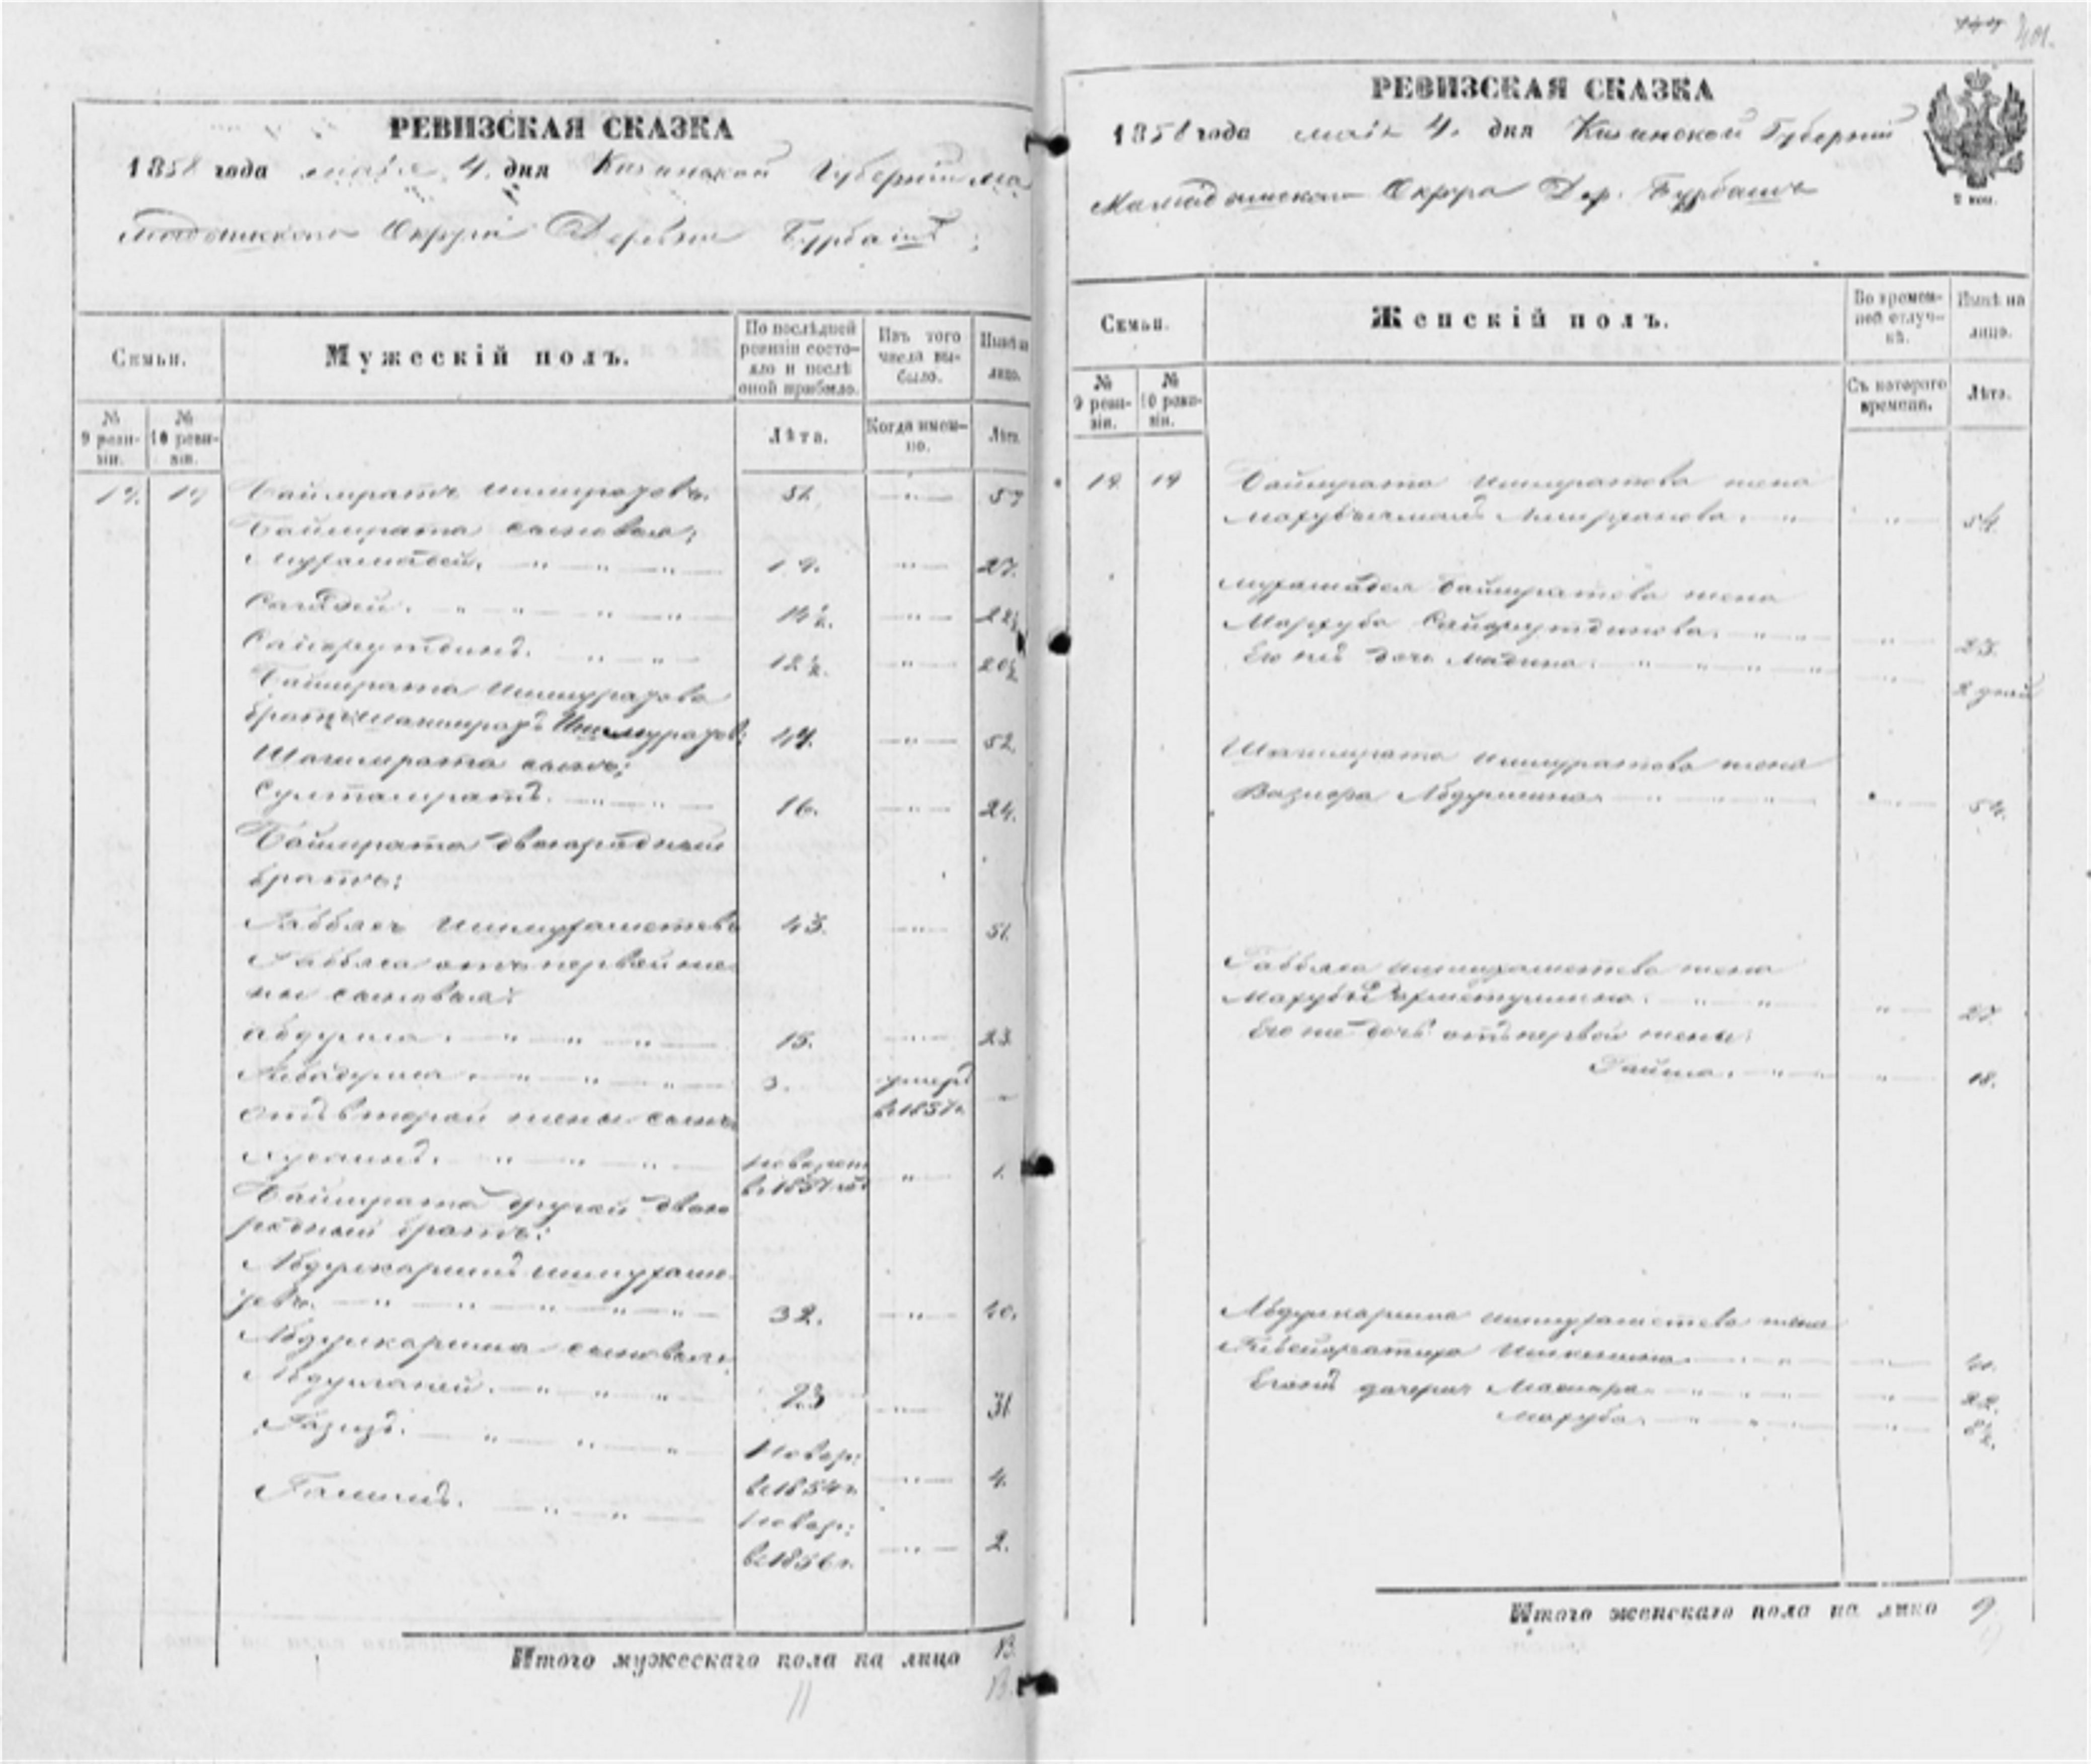 РЕВИЗСКАЯ СКАЗКА
1858 года маія 4. дня Казанской Губерніи Ма
мадышскаго Округа Деревни Бурбашъ
Семьи.
Мужескій полъ.
По послѣдней ревизіи состояло и послѣ оной прибыло.
Изъ того числа выбыло.
Нынѣ на лицо.
№ 9 ревизіи.
№ 10 ревизіи.
Лѣта.
Когда именно.
Лѣта.
19. 19 Баймратъ Ишмуратовъ. 51. 59
Баймрата сыновья;
Мухамадей. 19. 27.
Сагадей. 14½. 22½
Сайфутдинъ. 12½. 20½
Баймрата Ишмуратова
братъ Шагимратъ Ишмуратовъ; 44. 52.
Шагимрата сынъ;
Султамратъ. 16. 24.
Баймрата двоюродный
братъ;
Габбясъ Ишмухаметевъ 43. 51.
Габбяса отъ первой же
ны сыновья:
Абдулла. 15. 23.
3. умеръ
в 1857 г.
Отъ второй жены сынъ
Хусаинъ. новорож
в 1857 год 1.
Баймрата другой двою
родный братъ:
Абдулкаримъ Ишмухаме
тевъ. 32. 40.
Абдулкарима сыновья
Абдулганей. 23 31.
Газизъ. Новор:
в 1854 г. 4.
Галимъ. Новор:
в 1856 г. 2.
Итого мужескаго пола на лицо 13.
11 13.
401.
РЕВИЗСКАЯ СКАЗКА
1858 года маія 4. дня Казанской Губерніи
Мамадышскаго Округа Дер. Бурбашъ
2 коп.
Семьи.
Женскій полъ.
Во временной отлучкѣ.
Нынѣ на лицо.
№ 9 ревизіи.
№ 10 ревизіи.
Съ котораго времени.
Лѣта.
19 19 Баймрата Ишмуратова жена
54.
Мухамадея Баймратова жена
Махуба Сайфутдинова. 25.
Его же дочь Мадина. 2 дней
Шагимрата Ишмуратова жена
Вазифа 54.
Габбяса Ишмухаметева жена
27.
Его же дочь отъ первой жены:
18.
Абдулкарима Ишмухаметева жена
Бибифатиха 41.
Его же дочери 22.
Махуба. 8½.
Итого женскаго пола на лицо 9